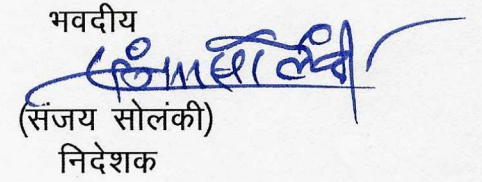 भवदीय
(संजय सोलंकी)
निदेशक